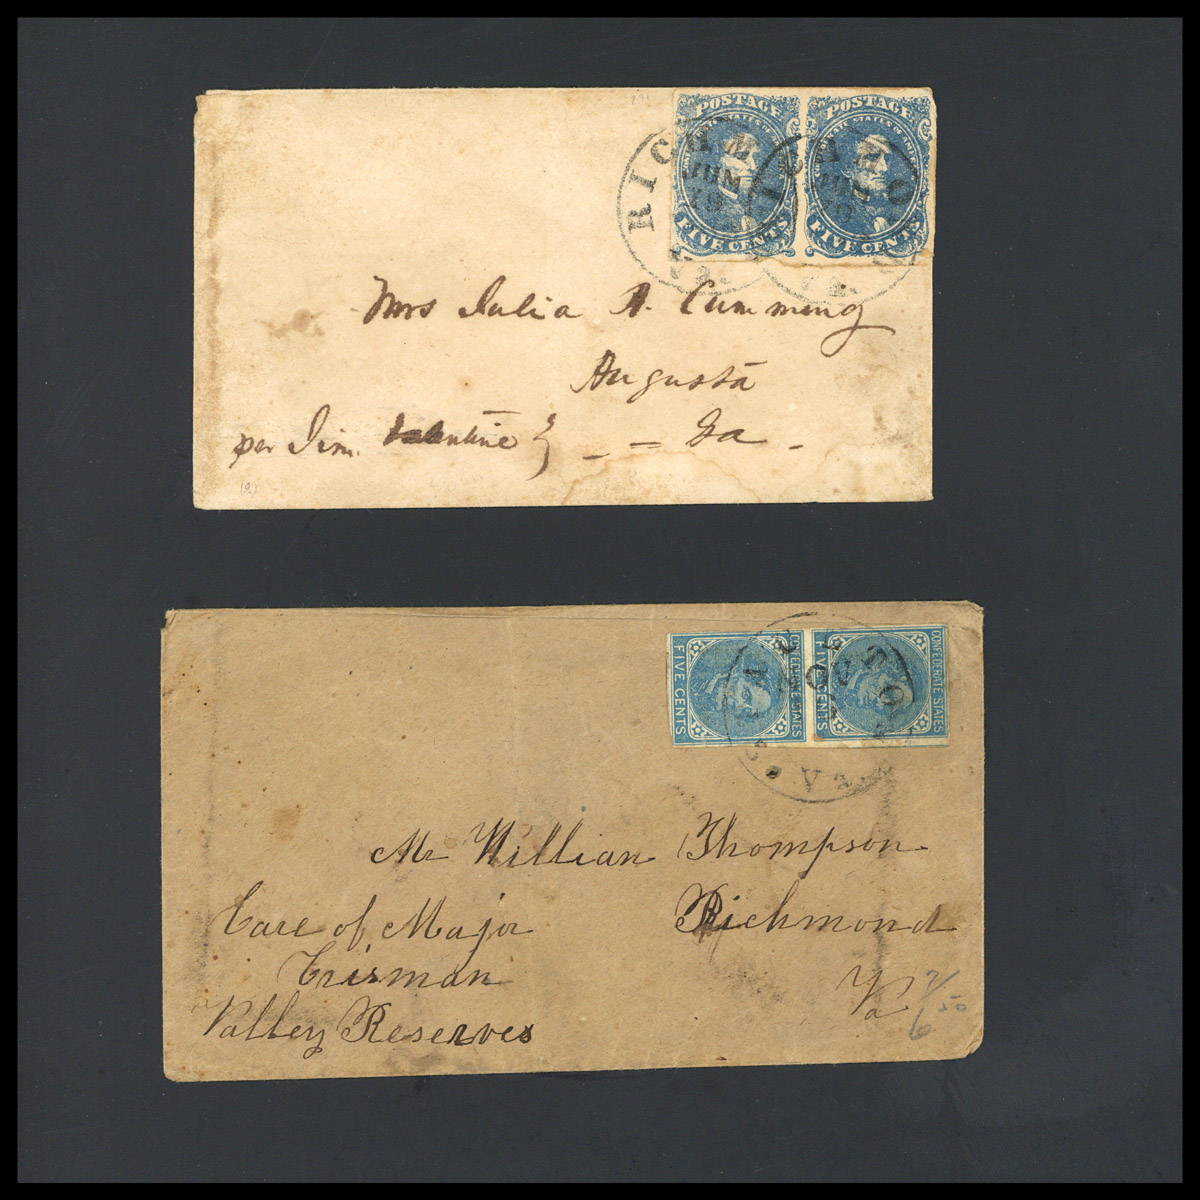 POSTAGE POSTAGE
FIVE CENTS FIVE CENTS
RICHM
JUN
19
VA.
VA.
Mrs Julia A. Cumming
Augusta
per Jim. Valentine } - = Ga -
FIVE CENTS CONFEDERATE STATES FIVE CENTS CONFEDERATE STATES
VA
Mr Willian Thompson
Care of Major Richmond
Crisman Va
Valley Reserves